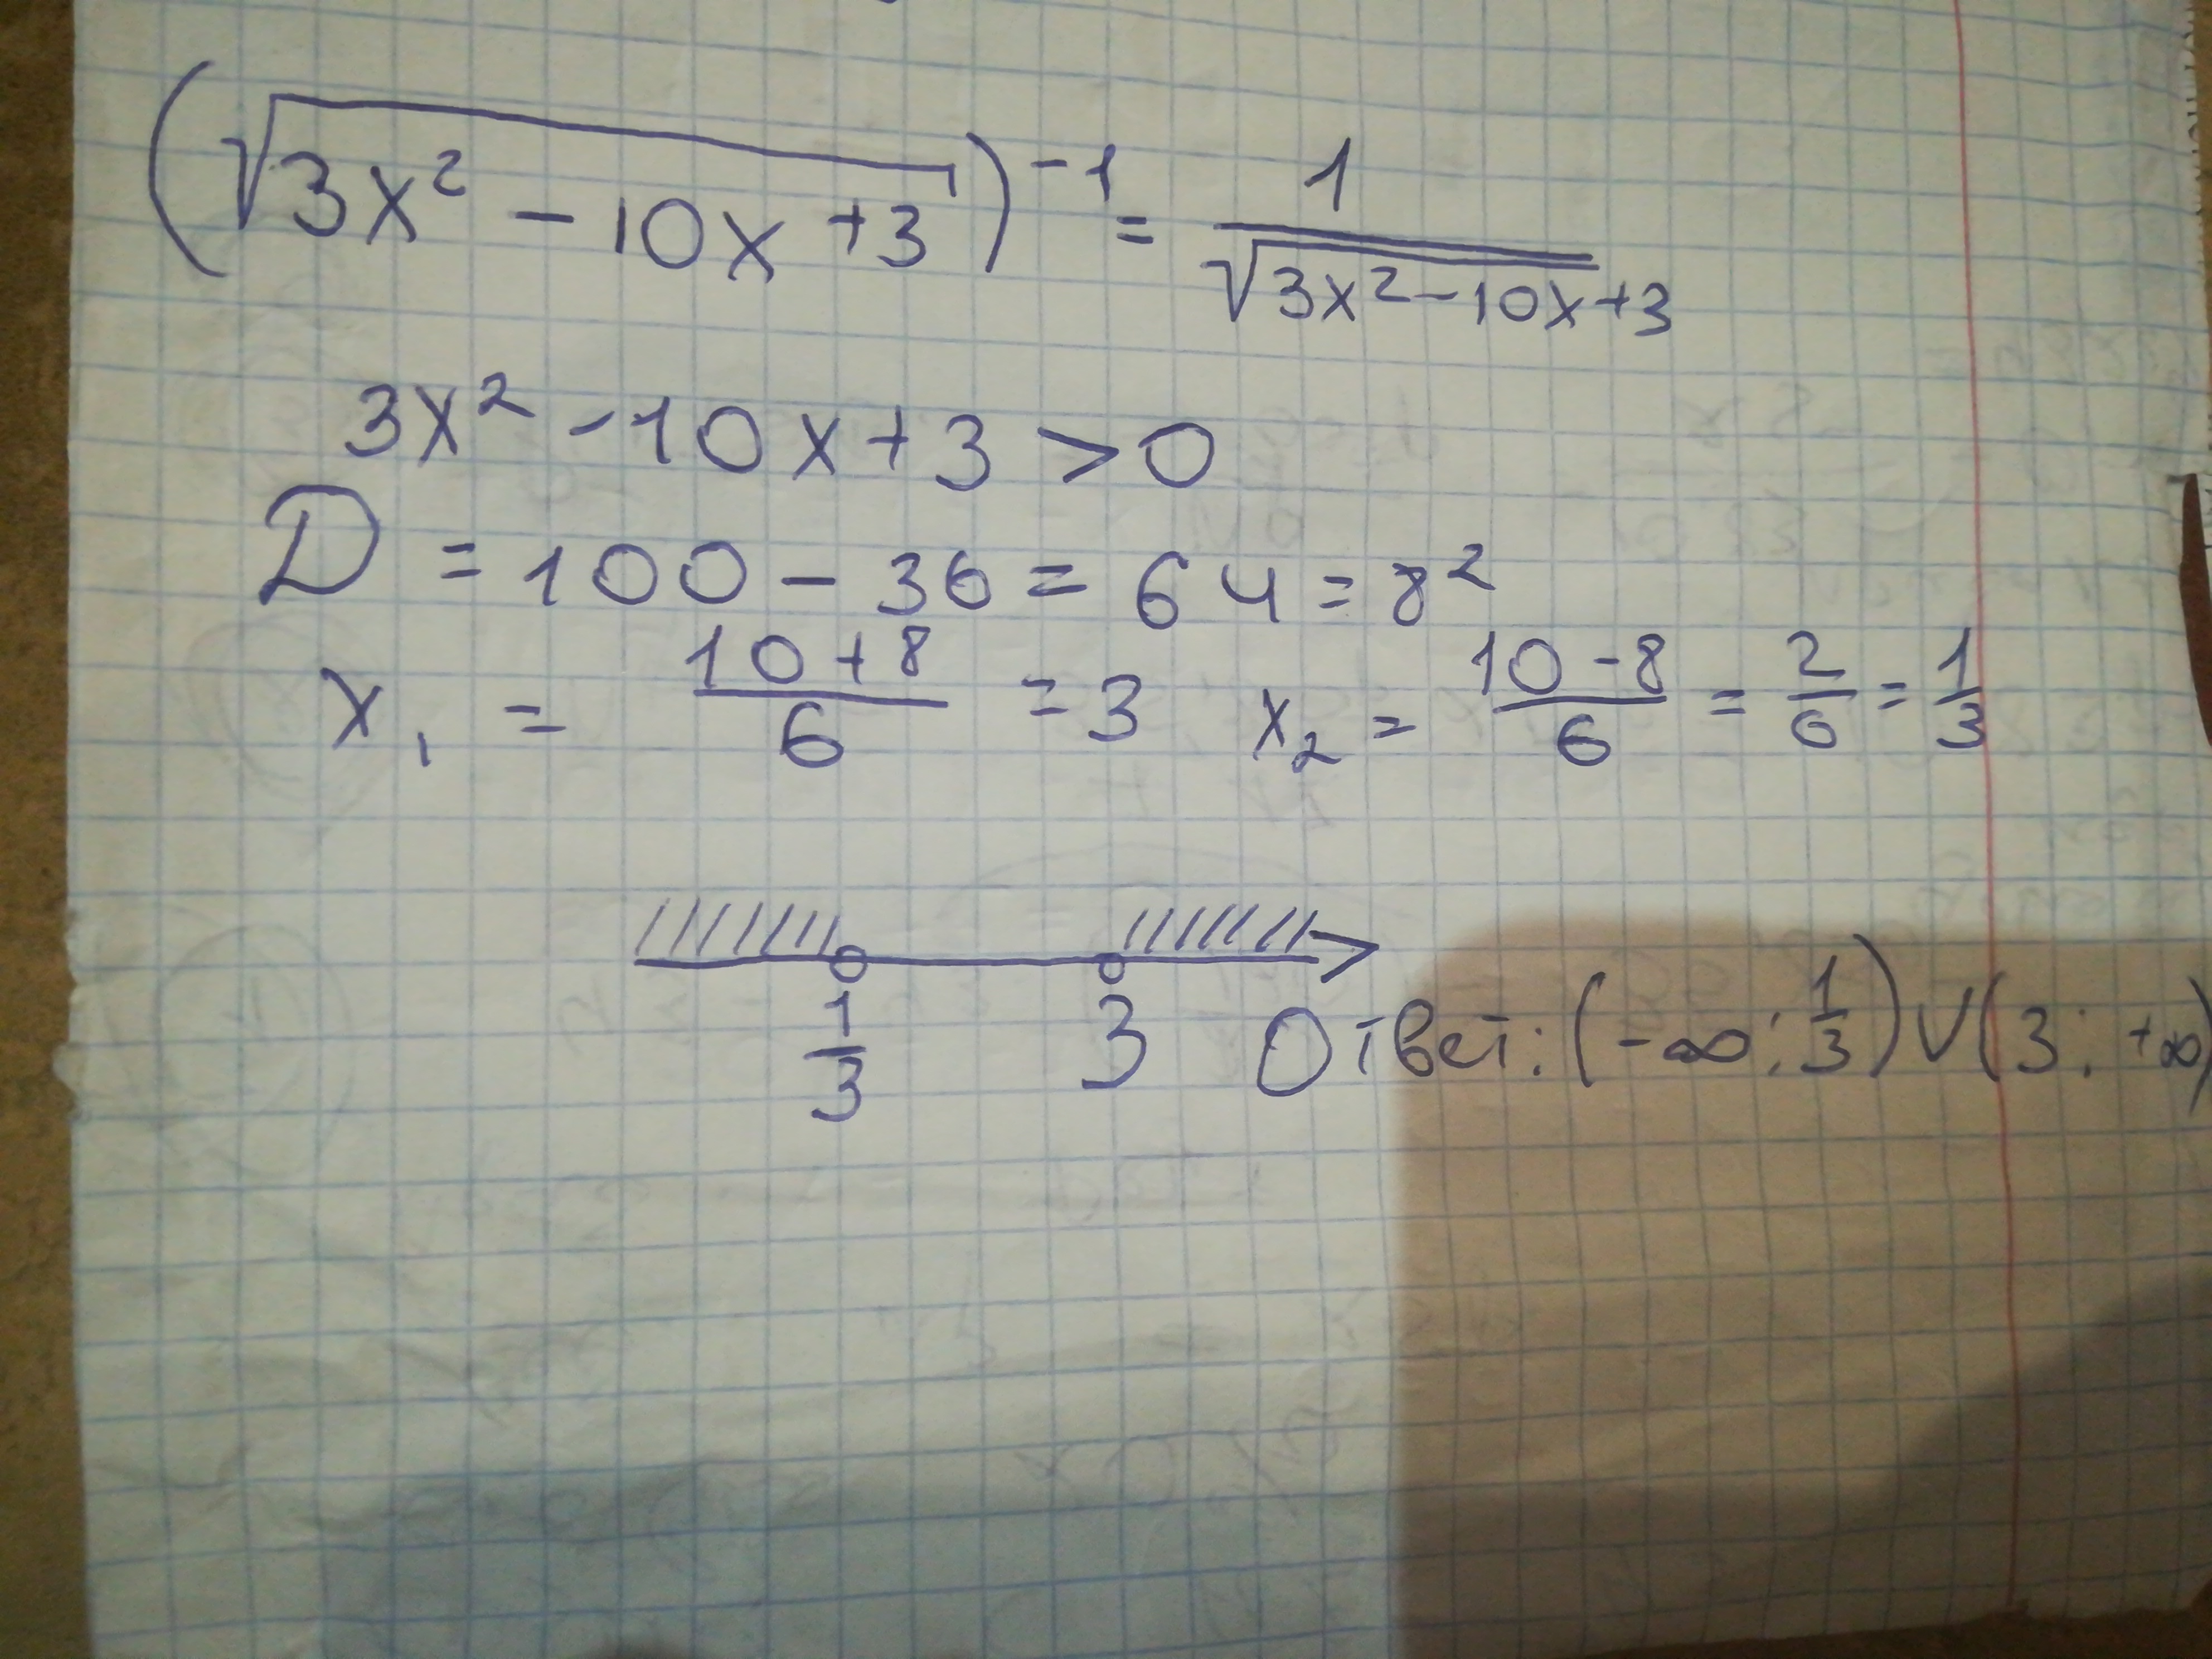 (√3x² - 10x + 3)⁻¹ = 1/√3x² - 10x + 3
3x² - 10x + 3 > 0
D = 100 - 36 = 64 = 8²
x₁ = 10 + 8/6 = 3 x₂ = 10 - 8/6 = 2/6 = 1/3
1/3 3 Ответ: (-∞; 1/3) ∪ (3; +∞)